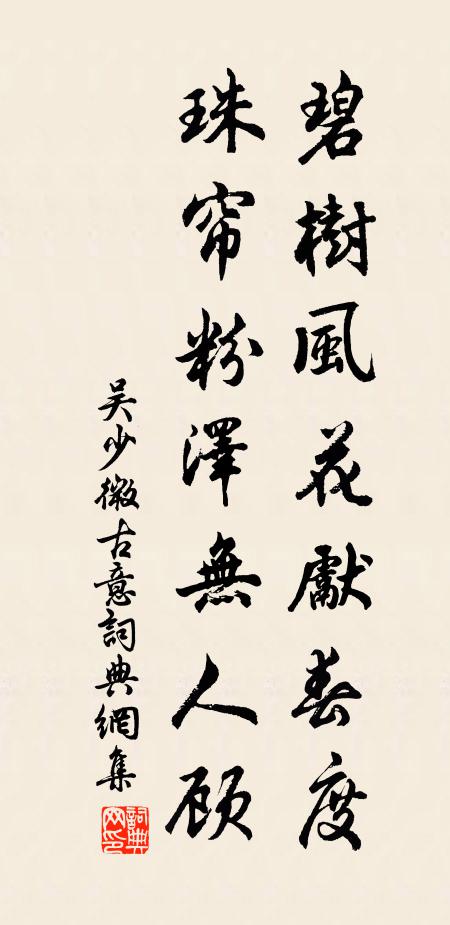 碧樹風花獻春度
珠帘粉澤無人顾
吴少微古意詞典網集
詞典网印